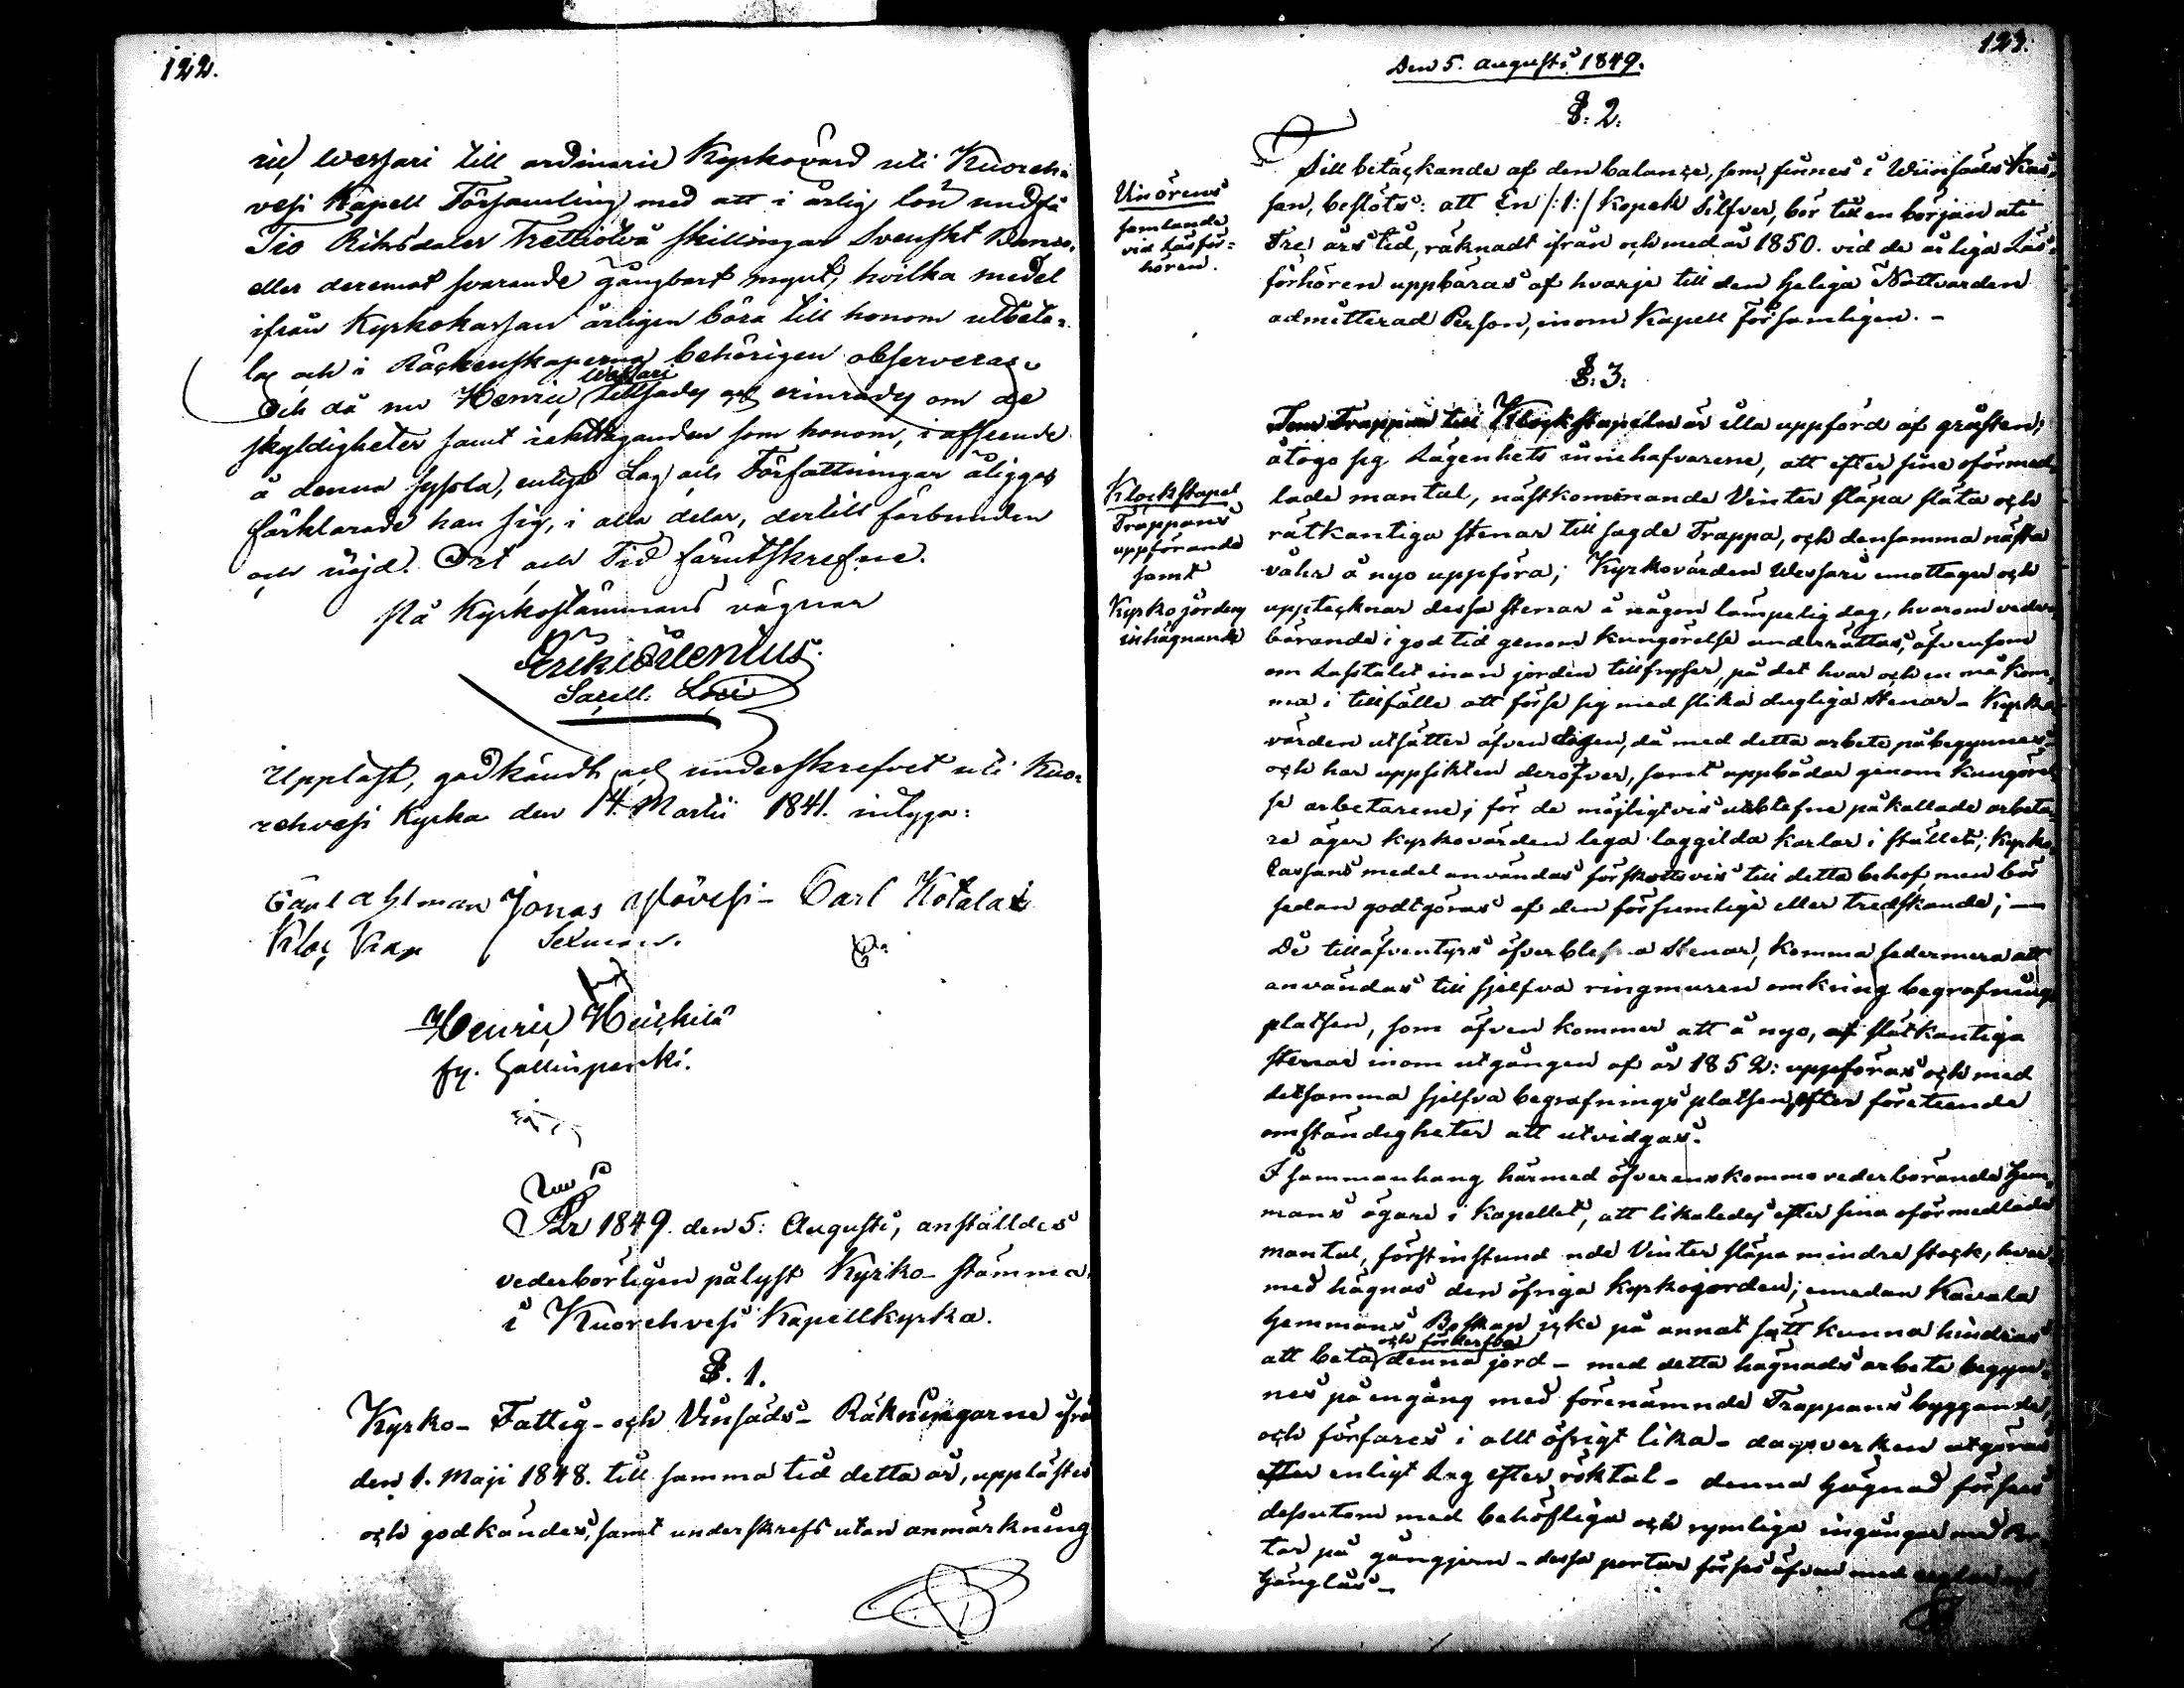 122.
ric Wessari till ordinarie Kyrkovärd uti Kuoreh-
vesi Kapell Församling med att i årlig lön undfå
Tio Riksdaler Trettiotvå skillingar Svenskt Banco,
eller deremot svarande gångbart mynt, hvilka medel
ifrån Kyrkokassan årligen böra till honom utbeta-
las och i Räckenskaperna behörigen observeras.
Och då nu Henric Wessari tillsades och erinrades om de
skyldigheter samt iakttaganden som honom, i afseende
å denna syssla, enligt Lag och Författningar åligger
förklarade han sig, i alla delar, dertill förbunden
och nöjd. Ort och Tid förutskrefne.
På Kyrkostämmans vägnar
Sacell. Loci
Uppläst, godkändt och underskrefvet uti Kuo-
rehvesi Kyrka den 14. Martii 1841. intyga:
Carl Ahlman Jonas Carl Kotala
Sexman.
Henric Heickilä
År 1849. den 5: Augusti, anställdes
vederbörligen pålyst Kyrko-stämma
i Kuorehvesi Kapellkyrka.
§. 1.
Kyrko- Fattig- och Vinsäds- Räkningarne ifrå
den 1. Maji 1848. till samma tid detta år, upplästes
och godkändes, samt underskrefs utan anmärkning
123.
Den 5. Augusti 1849.
§. 2.
Vinörens
samlande
vid Läsför-
hören.
Till betäckande af den balance, som finnes i Wiinsäds Kas-
san, beslöts: att En /:1:/ Kopek Silfver, bör till en början uti
Tre års tid, räknadt ifrån och med år 1850. vid de årliga Läs-
förhören uppbäras af hvarje till den heliga Nattvarden
admitterad Person, inom Kapell församligen. -
§. 3.
Klockstapel
Trappans
uppförande
samt
Kyrkojordens
inhägnande
Som Trappan till Klockstapeln är illa uppförd af gråsten;
åtogo sig Lägenhets innehafvarene, att efter sine oförmed-
lade mantal, nästkommande Vinter släpa släta och
rätkantiga stenar till sagde Trappa, och densamma nästa
våhr å nyo uppföra; Kyrkovärden Wessari emottager och
upptecknar dessa stenar å någon lämpelig dag, hvarom veder-
börande i god tid genom kungörelse underrättas, äfvensom
om Lasstalet innan jorden tillfryser, på det hvar och en må kom-
ma i tillfälle att förse sig med slika dugliga stenar - Kyrko-
värden utsätter äfven dagen, då med detta arbete påbegynnes
och har uppsikten deröfver, samt uppbådar genom kungörel-
se arbetarene; för de möjligtvis uteblefne påkallade arbeta-
re äger kyrkovärden lega laggilda karlar i stället; Kyrko-
Cassans medel användas förskottsvis till detta behof, men bör
sedan godtgöras af den försumliga eller tredskande; -
De tilläfventyrs öfverblefna stenar, komma sedermera att
användas till sjelfva ringmuren omkring begrafnings
platsen, som äfven kommer att å nyo, af slätkantiga
stenar inom utgången af år 1852: uppföras och med
detsamma sjelfva begrafnings platsen, efter företeende
omständigheter att utvidgas.
I sammanhang härmed öfverenskommo vederbörande Hem-
mans ägare i Kapellet, att likaledes efter sina oförmedlade
mantal, först instundande Vinter släpa mindre stock, hvar-
med hägnas den öfriga kyrkojorden; emedan Kavala
Hemmans Boskap icke på annat sätt kunna hindras
att beta och förderfva denna jord - med detta hägnads arbete begyn-
nes på engång med förenämnde Trappans byggande,
och förfares i allt öfrigt lika - dagsverken utgöras
efter enligt Lag efter röktal - denna Hägnad förses
dessutom med behöfliga och rymliga ingångar med Por-
tar på gångjern - dessa portar förses äfven med
Hänglås -